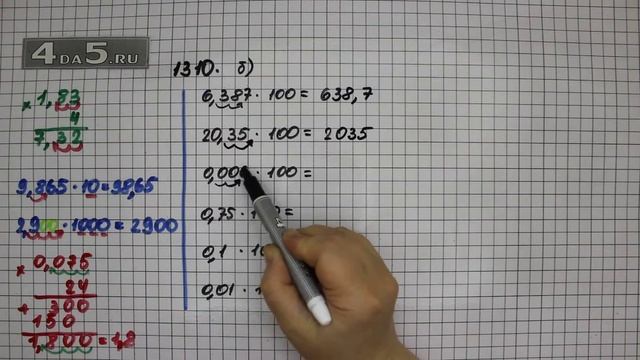 4DA5.RU
1310. б)
× 1,83
4
7,32
9,865 · 10 = 98,65
2,900 · 1000 = 2900
× 0,075
24
+ 300
150
1,800 = 1,8
6,387 · 100 = 638,7
20,35 · 100 = 2035
0,006 · 100 =
0,75 · 1
0,1 · 10
0,01 · 1